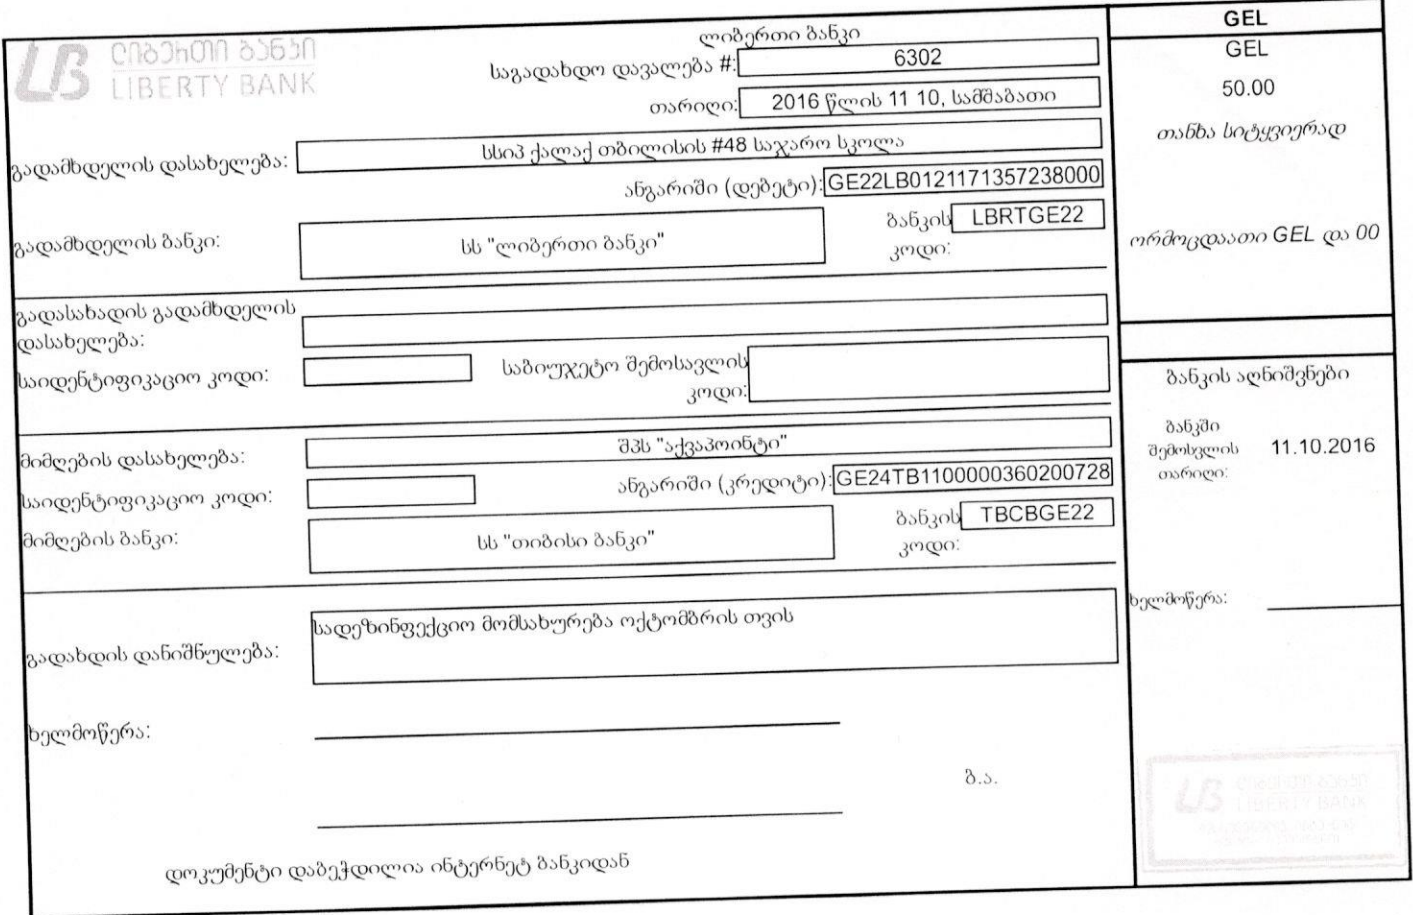 ლიბერთი ბანკი
LIBERTY BANK
ლიბერთი ბანკი
საგადახდო დავალება #: 6302
თარიღი: 2016 წლის 11 10, სამშაბათი
გადამხდელის დასახელება: სსიპ ქალაქ თბილისის #48 საჯარო სკოლა
ანგარიში (დებეტი): GE22LB0121171357238000
გადამხდელის ბანკი: სს "ლიბერთი ბანკი" ბანკის კოდი: LBRTGE22
გადასახადის გადამხდელის
დასახელება:
საიდენტიფიკაციო კოდი: საბიუჯეტო შემოსავლის
კოდი:
მიმღების დასახელება: შპს "აქვაპოინტი"
საიდენტიფიკაციო კოდი: ანგარიში (კრედიტი): GE24TB1100000360200728
მიმღების ბანკი: სს "თიბისი ბანკი" ბანკის კოდი: TBCBGE22
გადახდის დანიშნულება: სადეზინფექციო მომსახურება ოქტომბრის თვის
ხელმოწერა:
ბ.ა.
დოკუმენტი დაბეჭდილია ინტერნეტ ბანკიდან
GEL
GEL
50.00
თანხა სიტყვიერად
ორმოცდაათი GEL და 00
ბანკის აღნიშვნები
ბანკში
შემოსვლის 11.10.2016
თარიღი:
ხელმოწერა:
LB ლიბერთი ბანკი
LIBERTY BANK